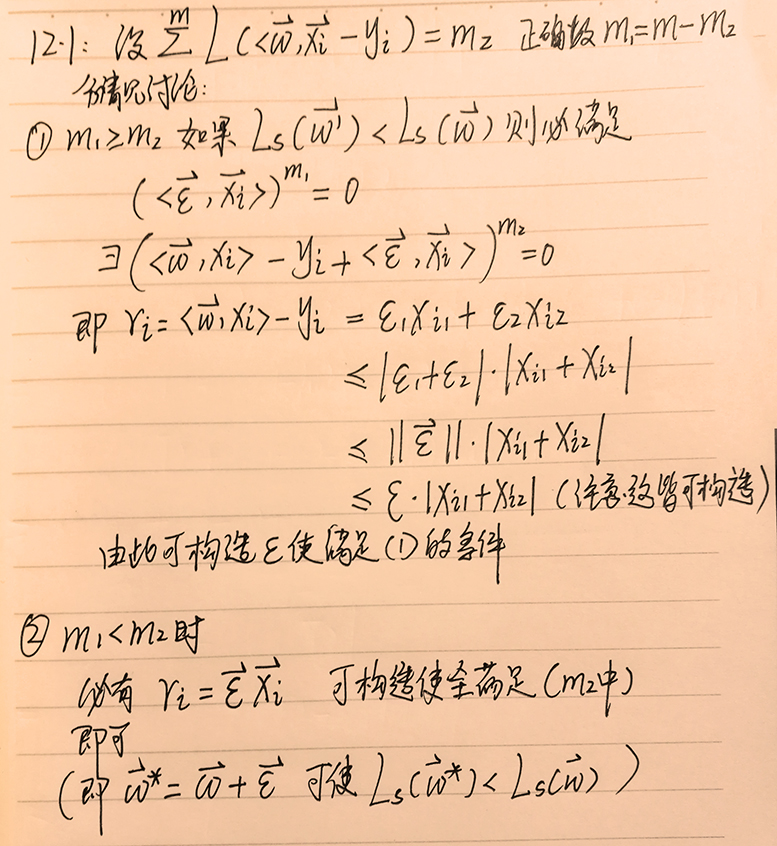 12.1: 设 ∑^m L(<w⃗, x⃗i - yi) = m2 正确数 m1=m-m2
分情况讨论:
① m1≥m2 如果 Ls(w⃗') < Ls(w⃗) 则必满足
(<ε⃗, x⃗i>)^m1 = 0
∃(<w⃗, xi> - yi + <ε⃗, x⃗i>)^m2 = 0
即 ri = <w⃗, xi> - yi = ε1xi1 + ε2xi2
≤ |ε1+ε2|·|xi1+xi2|
≤ ||ε⃗||·|xi1+xi2|
≤ ε·|xi1+xi2| (任意效皆可构造)
由此可构造ε使满足(1)的条件
② m1<m2时
必有 ri = ε⃗x⃗i 可构造使全满足(m2中)
即可
(即 w⃗* = w⃗ + ε⃗ 可使 Ls(w⃗*) < Ls(w⃗))